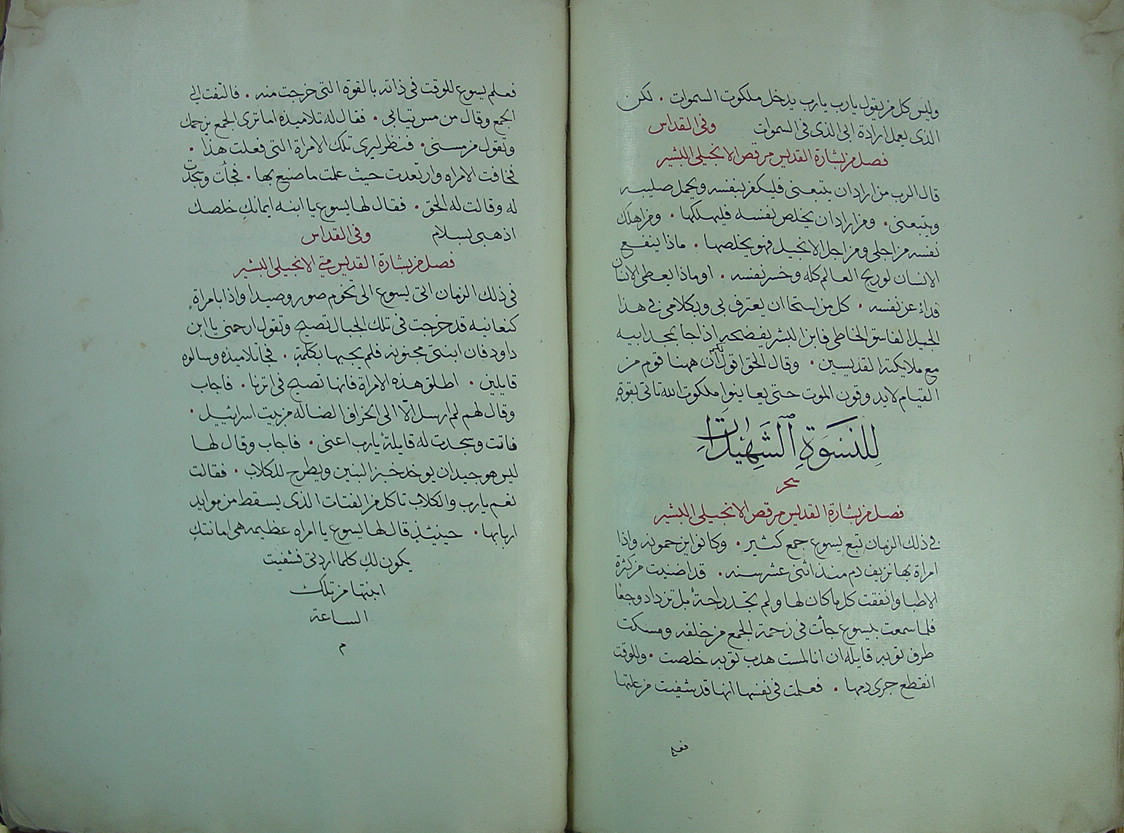 وليس كل من يقول يارب يارب يدخل ملكوت السموات . لكن
الذى يعمل ارادة ابى الذى فى السموات وفى القداس
فصل من بشارة القديس مرقص الانجيلى البشير
قال الرب من اراد ان يتبعنى فليكفر بنفسه ويحمل صليبه
ويتبعنى . ومن اراد ان يخلص نفسه فليهلكها . ومن اهلك
نفسه من اجلى ومن اجل الانجيل فهو يخلصها . ماذا ينفع
الانسان لو ربح العالم كله وخسر نفسه . او ماذا يعطى الانسان
فداء عن نفسه . كل من استحا ان يعترف بى وبكلامى فى هذا
الجيل الفاسق الخاطى فابن البشر يفضحه اذا جا بمجد ابيه
مع ملايكته القديسين . وقال الحق اقول لكم ان ههنا قوم من
القيام لا يدوقون الموت حتى يعاينوا ملكوت الله تاتى بقوة
لِلنسوَةِ الشَهِيدَاتِ
سحر
فصل من بشارة القديس مرقص الانجيلى البشير
فى ذلك الزمان تبع يسوع جمع كثير . وكانوا يزحمونه واذا
امراة بها نزيف دم منذ اثنى عشر سنه . قد اضنيت من كثرة
الاطبا وانفقت كل ما كان لها ولم تجد راحة بل تزداد وجعا
فلما سمعت بيسوع جأت فى زحمة الجمع من خلفه ومسكت
طرف ثوبه قايله ان انا لمست هدب ثوبه خلصت . وللوقت
انقطع جرى دمها . فعلمت فى نفسها انها قد شفيت من علتها
فعلم
فعلم يسوع للوقت فى ذاته بالقوة التى خرجت منه . فالتفت الى
الجمع وقال من مس ثيابى . فقال له تلاميذه اما ترى الجمع يزحمك
وتقول من مسنى . فنظر ليرى تلك الامراة التى فعلت هذا .
فخافت الامراه وارتعدت حيث علمت ما صنع بها . فجأت وسجدت
له وقالت له الحق . فقال لها يسوع يا ابنه ايمانك خلصك
اذهبى بسلام وفى القداس
فصل من بشارة القديس متى الانجيلى البشير
فى ذلك الزمان اتى يسوع الى تخوم صور وصيدا واذا بامراة
كنعانيه قد خرجت فى تلك الجبال تصيح وتقول ارحمنى يا ابن
داود فان ابنتى مجنونه فلم يجبها بكلمة . فجا تلاميذه وسالوه
قايلين . اطلق هذه الامراة فانها تصيح فى اثرنا . فاجاب
وقال لهم لم ارسل الا الى الخراف الضاله من بيت اسرائيل .
فاتت وسجدت له قايلة يارب اعنى . فاجاب وقال لها
ليس هو جيد ان يوخذ خبز البنين ويطرح للكلاب . فقالت
نعم يارب والكلاب تاكل من الفتات الذى يسقط من موايد
اربابها . حينيذ قال لها يسوع يا امراه عظيمه هى امانتك
يكون لك كلما اردتى فشفيت
ابنتها من تلك
الساعة
م